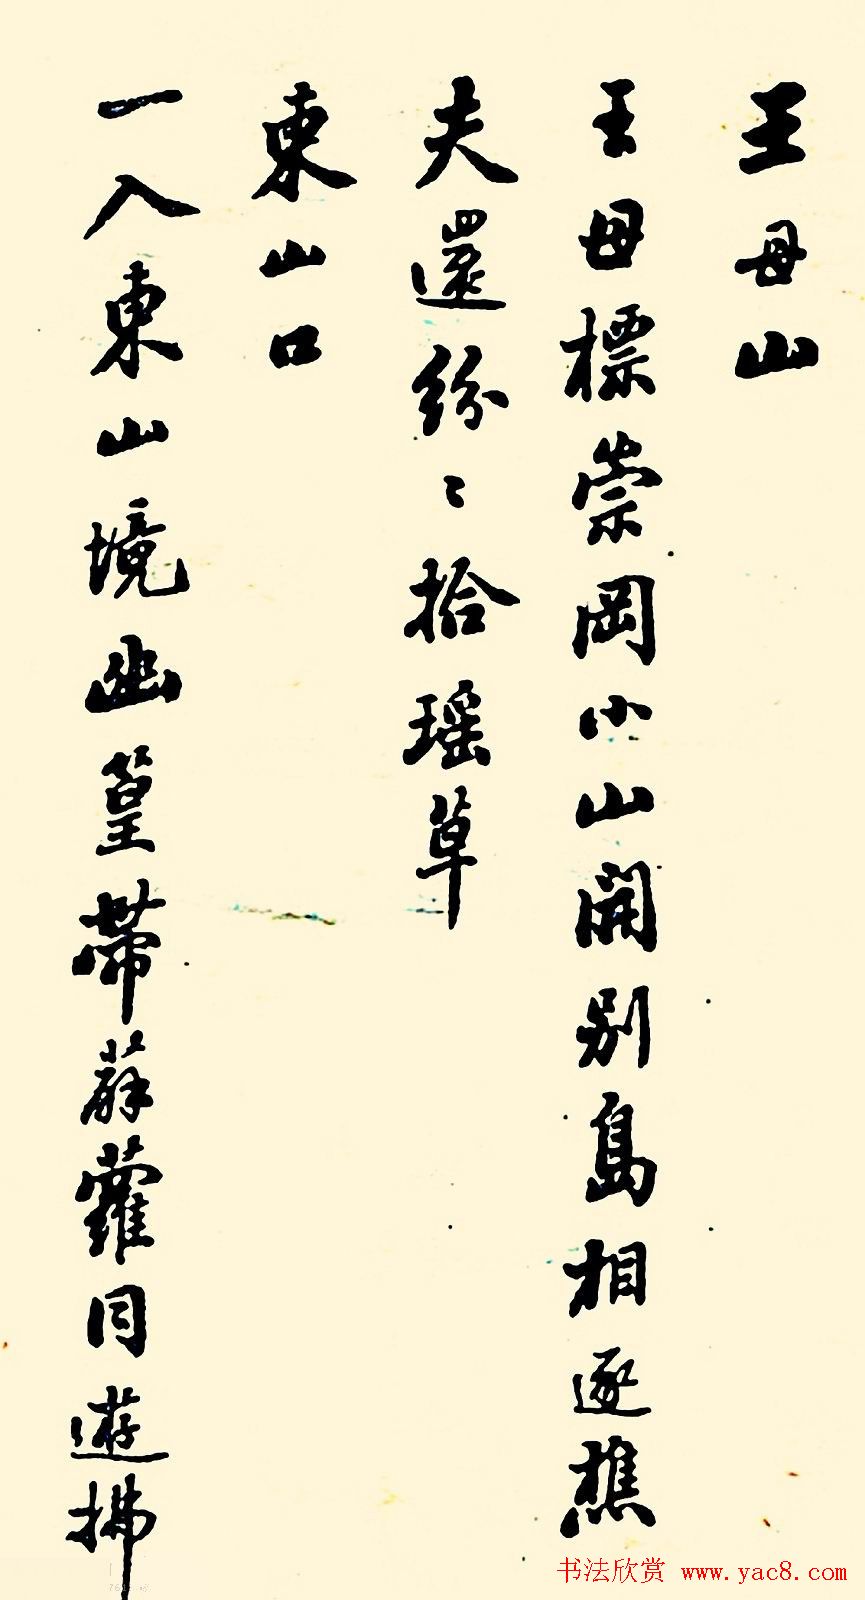 王母山
王母標崇岡小山開別島相逐樵
夫還紛〻拾瑤草
東山口
一入東山境幽篁帶薜蘿同遊拂
书法欣赏 www.yac8.com